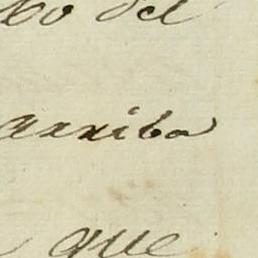 bo del
arriba
que